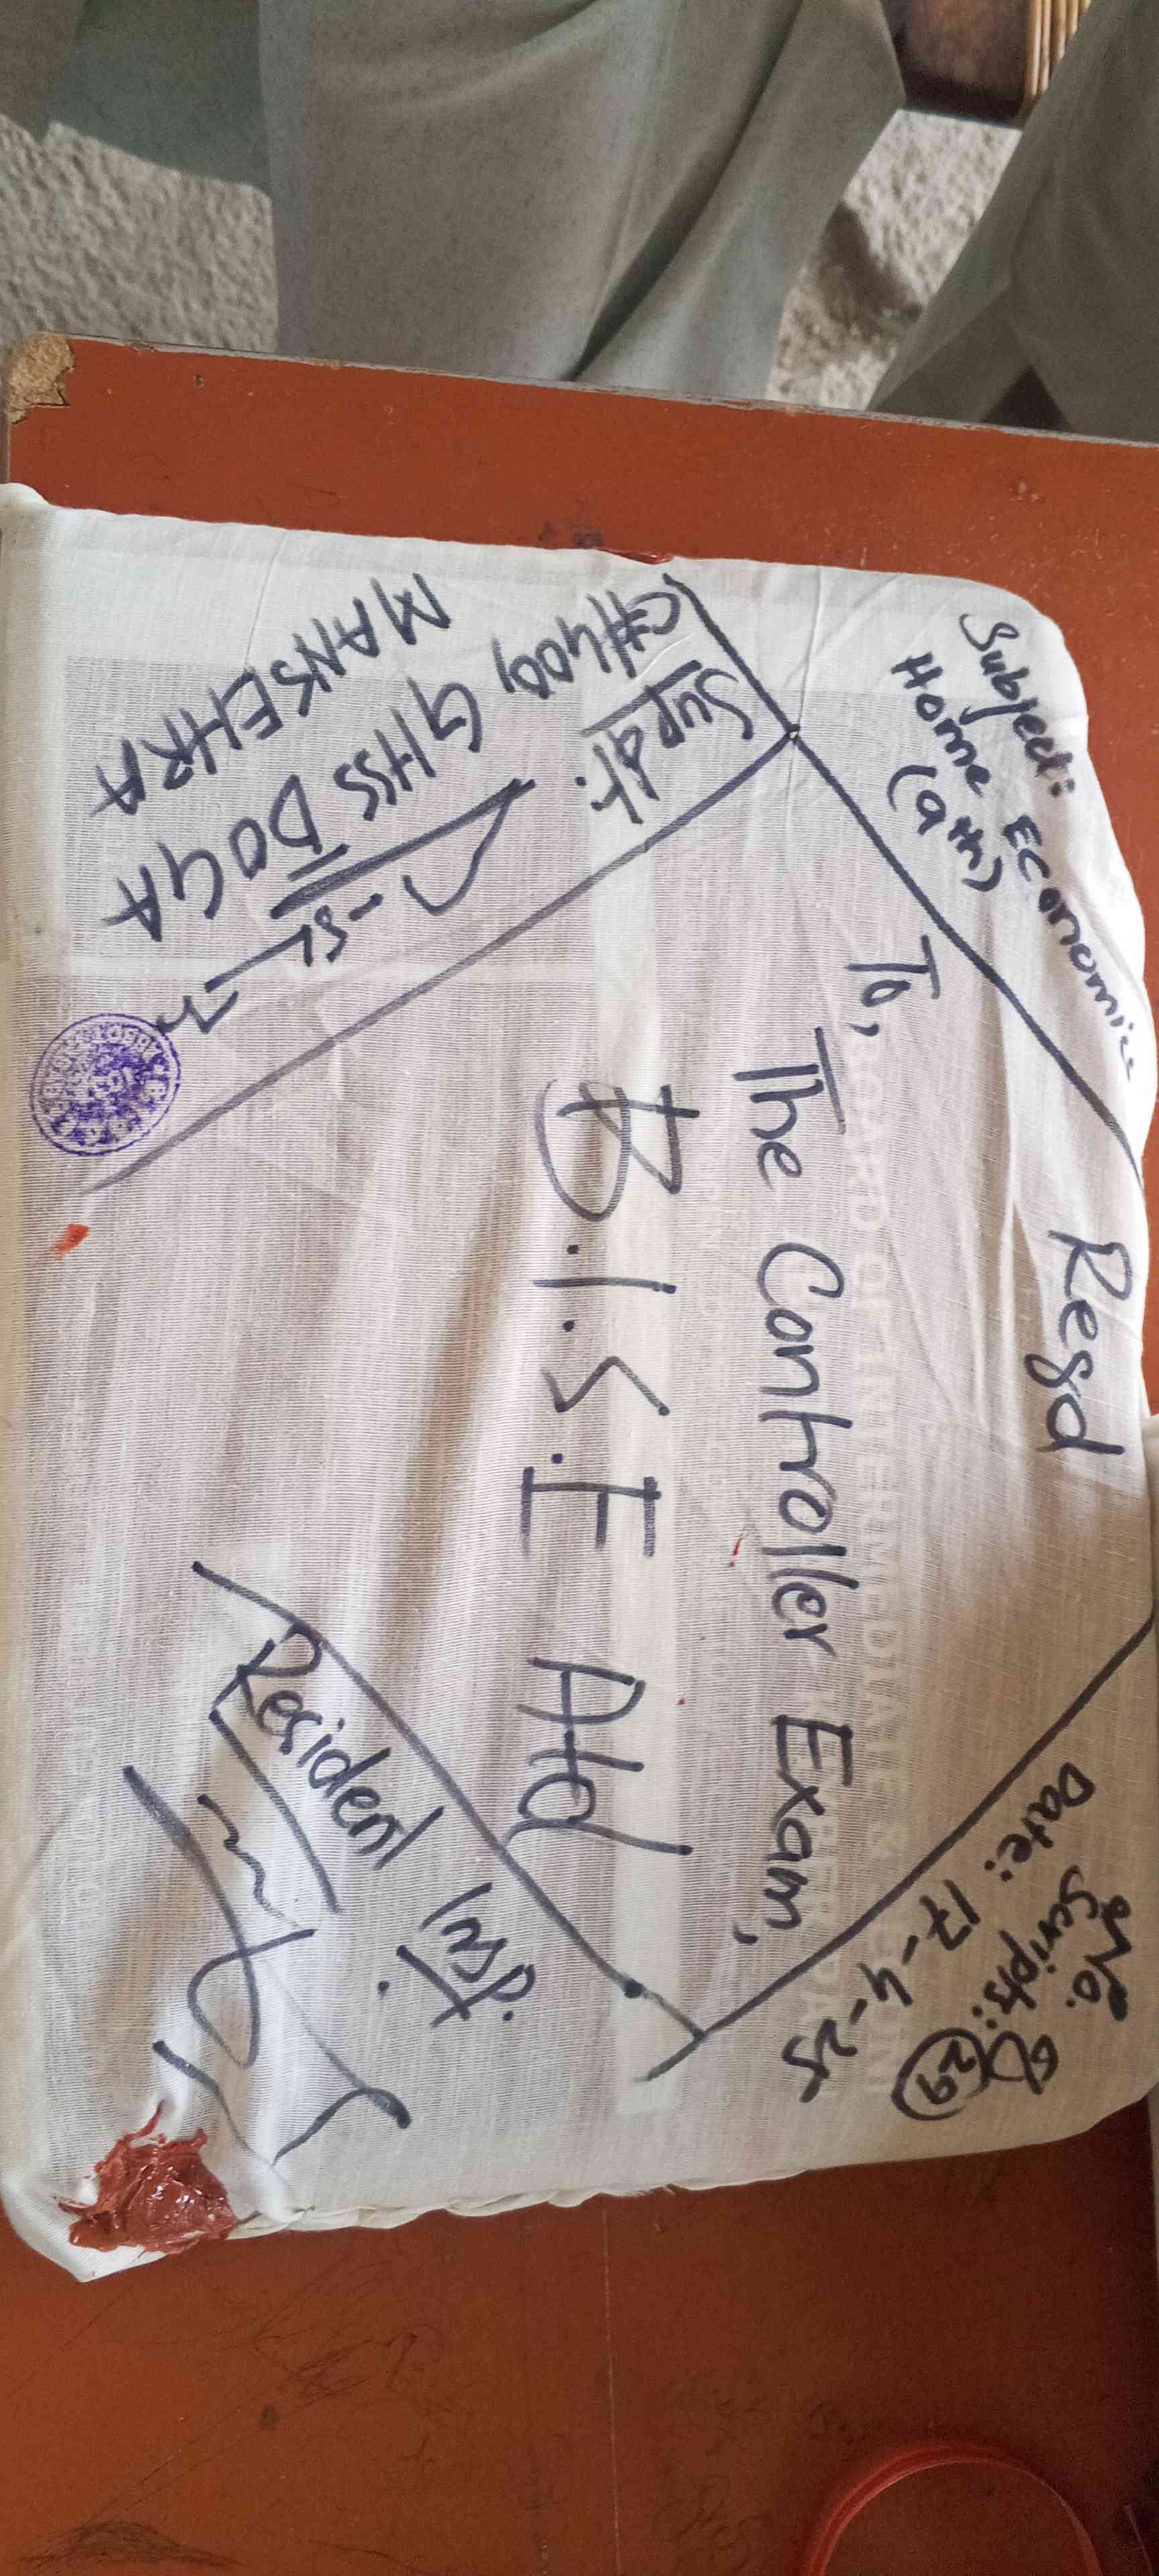 Subject:
Home Economics
(9th)
Regd
No.
Scripts: 29
Date: 17-4-25
To,
The Controller Exam,
B.I.S.E Atd
Supdt.
C#4001
GHSS DOGA
MANSEHRA
Resident Insp.